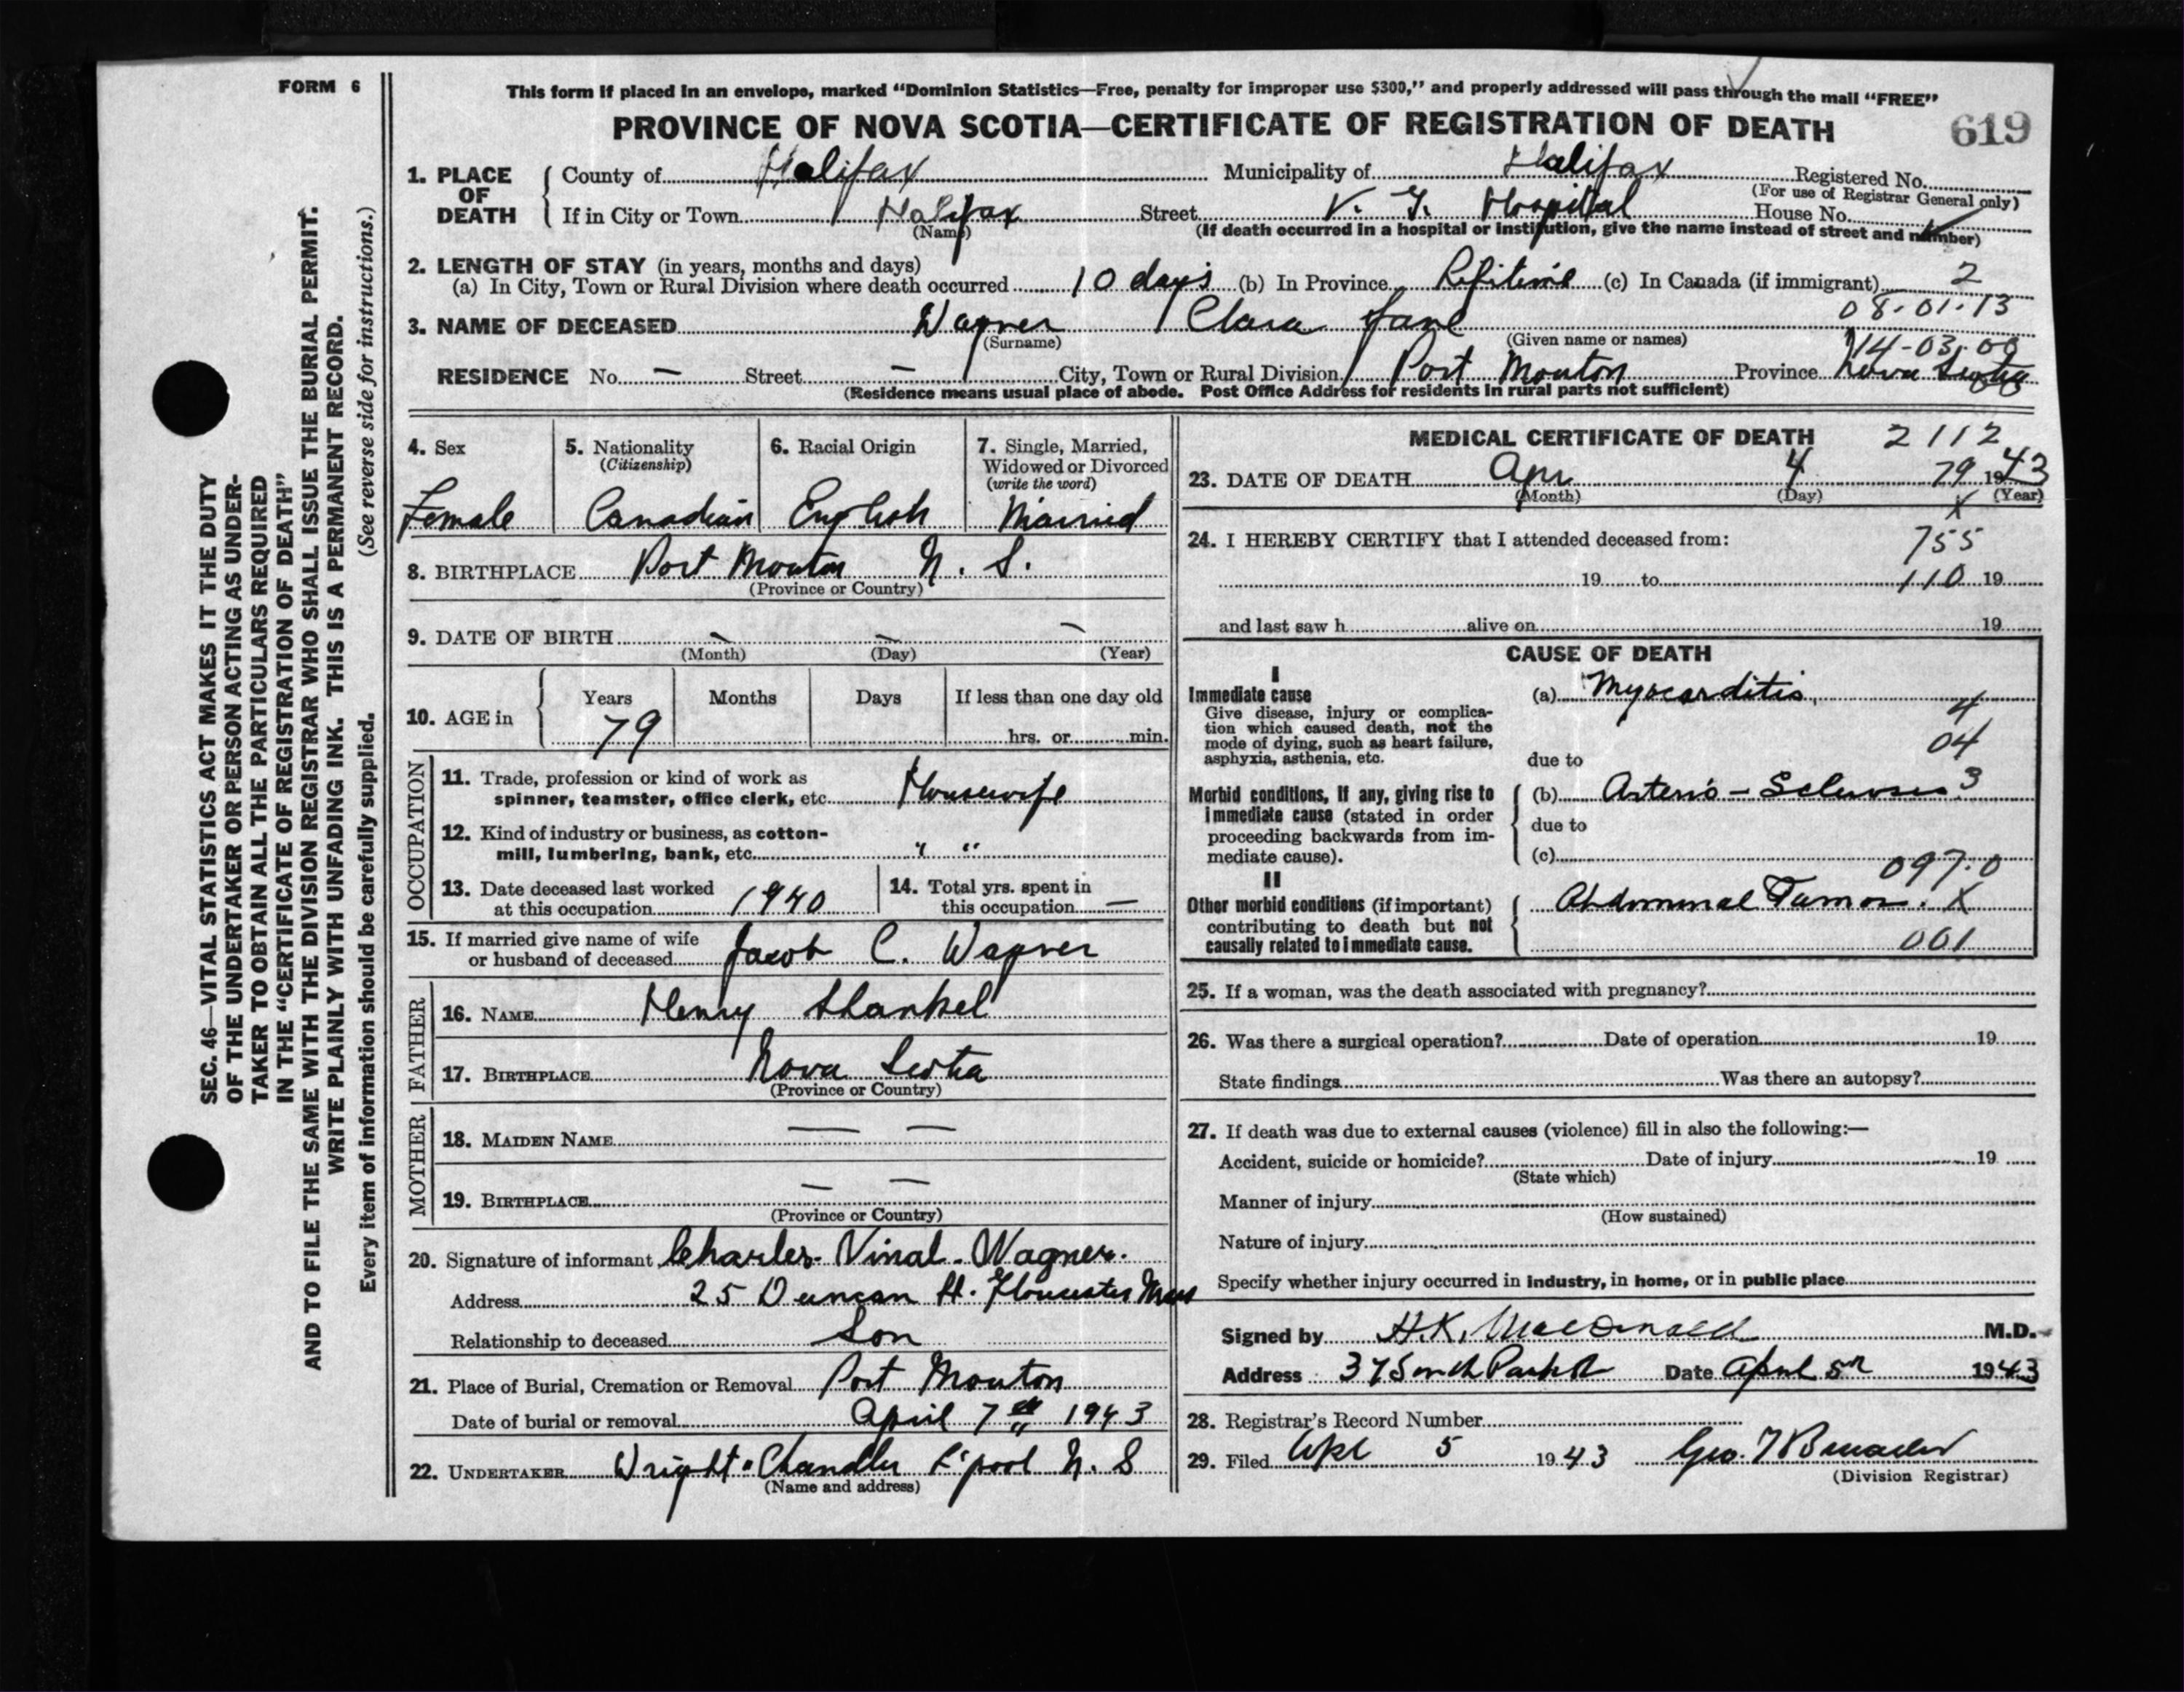 FORM 6
This form if placed in an envelope, marked “Dominion Statistics—Free, penalty for improper use $300,” and properly addressed will pass through the mail “FREE”
PROVINCE OF NOVA SCOTIA—CERTIFICATE OF REGISTRATION OF DEATH
619
1. PLACE OF DEATH
County of Halifax Municipality of Halifax Registered No.
(For use of Registrar General only)
If in City or Town Halifax Street V. G. Hospital House No.
(Name) (If death occurred in a hospital or institution, give the name instead of street and number)
2. LENGTH OF STAY (in years, months and days)
(a) In City, Town or Rural Division where death occurred 10 days (b) In Province Lifetime (c) In Canada (if immigrant) 2
08-01-13
3. NAME OF DECEASED Wagner Clara Jane
(Surname) (Given name or names)
14-03-00
RESIDENCE No. — Street — City, Town or Rural Division Port Mouton Province Nova Scotia
(Residence means usual place of abode. Post Office Address for residents in rural parts not sufficient)
4. Sex
Female
5. Nationality
(Citizenship)
Canadian
6. Racial Origin
English
7. Single, Married,
Widowed or Divorced
(write the word)
Married
8. BIRTHPLACE Port Mouton N. S.
(Province or Country)
9. DATE OF BIRTH — — —
(Month) (Day) (Year)
10. AGE in
Years Months Days If less than one day old
79 hrs. or min.
OCCUPATION
11. Trade, profession or kind of work as
spinner, teamster, office clerk, etc. Housewife
12. Kind of industry or business, as cotton-
mill, lumbering, bank, etc. " "
13. Date deceased last worked
at this occupation 1940
14. Total yrs. spent in
this occupation —
15. If married give name of wife
or husband of deceased Jacob C. Wagner
FATHER
16. NAME Henry Shankel
17. BIRTHPLACE Nova Scotia
(Province or Country)
MOTHER
18. MAIDEN NAME — —
19. BIRTHPLACE — —
(Province or Country)
20. Signature of informant Charles Vinal Wagner.
Address 25 Duncan St. Gloucester Mass
Relationship to deceased Son
21. Place of Burial, Cremation or Removal Port Mouton
Date of burial or removal April 7th 1943
22. UNDERTAKER Wright Chandler L'pool N. S
(Name and address)
MEDICAL CERTIFICATE OF DEATH 2112
23. DATE OF DEATH Apr 4 79 1943
(Month) (Day) (Year)
X
24. I HEREBY CERTIFY that I attended deceased from: 755
19 to 110 19
and last saw h alive on 19
CAUSE OF DEATH
I
Immediate cause (a) Myocarditis
Give disease, injury or complica-
tion which caused death, not the
mode of dying, such as heart failure,
asphyxia, asthenia, etc.
4
04
due to
3
Morbid conditions, if any, giving rise to
immediate cause (stated in order
proceeding backwards from im-
mediate cause).
(b) Arterio-Sclerosis
due to
(c)
097.0
II
Other morbid conditions (if important)
contributing to death but not
causally related to immediate cause.
Abdominal Tumor. X
001
25. If a woman, was the death associated with pregnancy?
26. Was there a surgical operation? Date of operation 19
State findings Was there an autopsy?
27. If death was due to external causes (violence) fill in also the following:—
Accident, suicide or homicide? Date of injury 19
(State which)
Manner of injury
(How sustained)
Nature of injury
Specify whether injury occurred in industry, in home, or in public place
Signed by H.K. MacDonald M.D.
Address 37 South Park St Date April 5th 1943
28. Registrar’s Record Number
29. Filed Apl 5 1943 Geo.
(Division Registrar)
SEC. 46—VITAL STATISTICS ACT MAKES IT THE DUTY
OF THE UNDERTAKER OR PERSON ACTING AS UNDER-
TAKER TO OBTAIN ALL THE PARTICULARS REQUIRED
IN THE “CERTIFICATE OF REGISTRATION OF DEATH”
AND TO FILE THE SAME WITH THE DIVISION REGISTRAR WHO SHALL ISSUE THE BURIAL PERMIT.
WRITE PLAINLY WITH UNFADING INK. THIS IS A PERMANENT RECORD.
Every item of information should be carefully supplied. (See reverse side for instructions.)